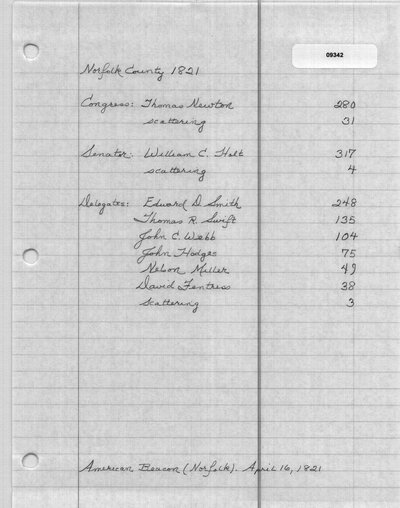 09342
Norfolk County 1821
Congress: Thomas Newton 280
scattering 31
Senator: William C. Holt 317
scattering 4
Delegates: Edward D. Smith 248
Thomas R. Swift 135
John C. Webb 104
John Hodges 75
Nelson Miller 49
David Fentress 38
scattering 3
American Beacon (Norfolk). April 16, 1821